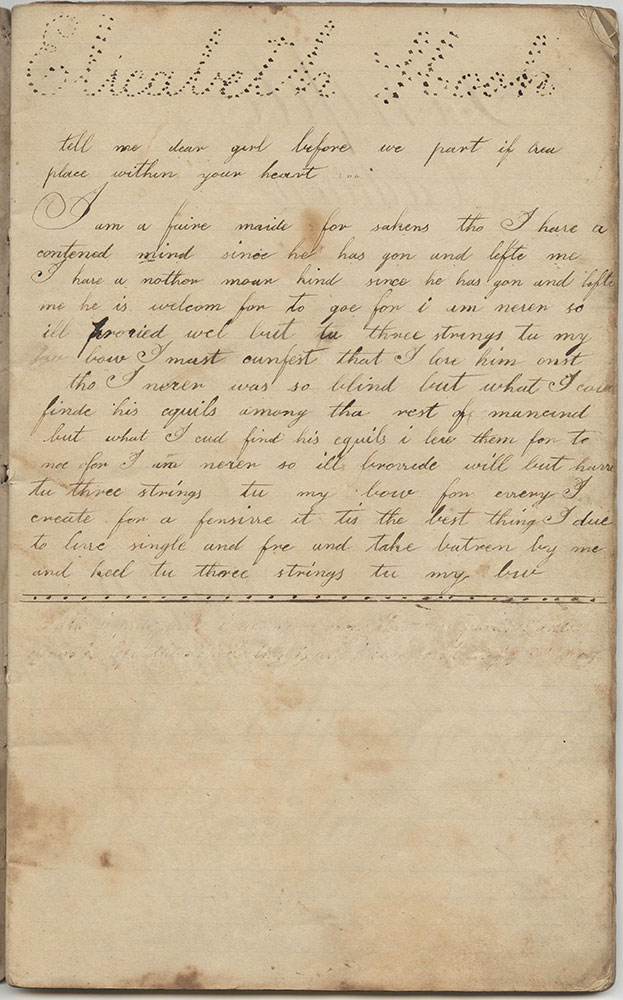 Elicabeth
tell me dear girl before we part if
place within your heart
I am a faire maide for sakens tho I have a
contened mind since he has gon and lefte me
I have a nother moar kind since he has gon and lefte
me he is welcom for to goe for i am never so
ill wel but tu three strings tu my
bow I must cunfest that I love him onst
tho I never was so blind but what I
finde his equils among tha rest of mancind
but what I cud find his equils i leve them for to
noe for I am never so ill brovide will but
tu three strings tu my bow for evvery I
create for a fensive it tis the best thing I due
to live single and fre and take by me
and keel tu three strings tu my bw